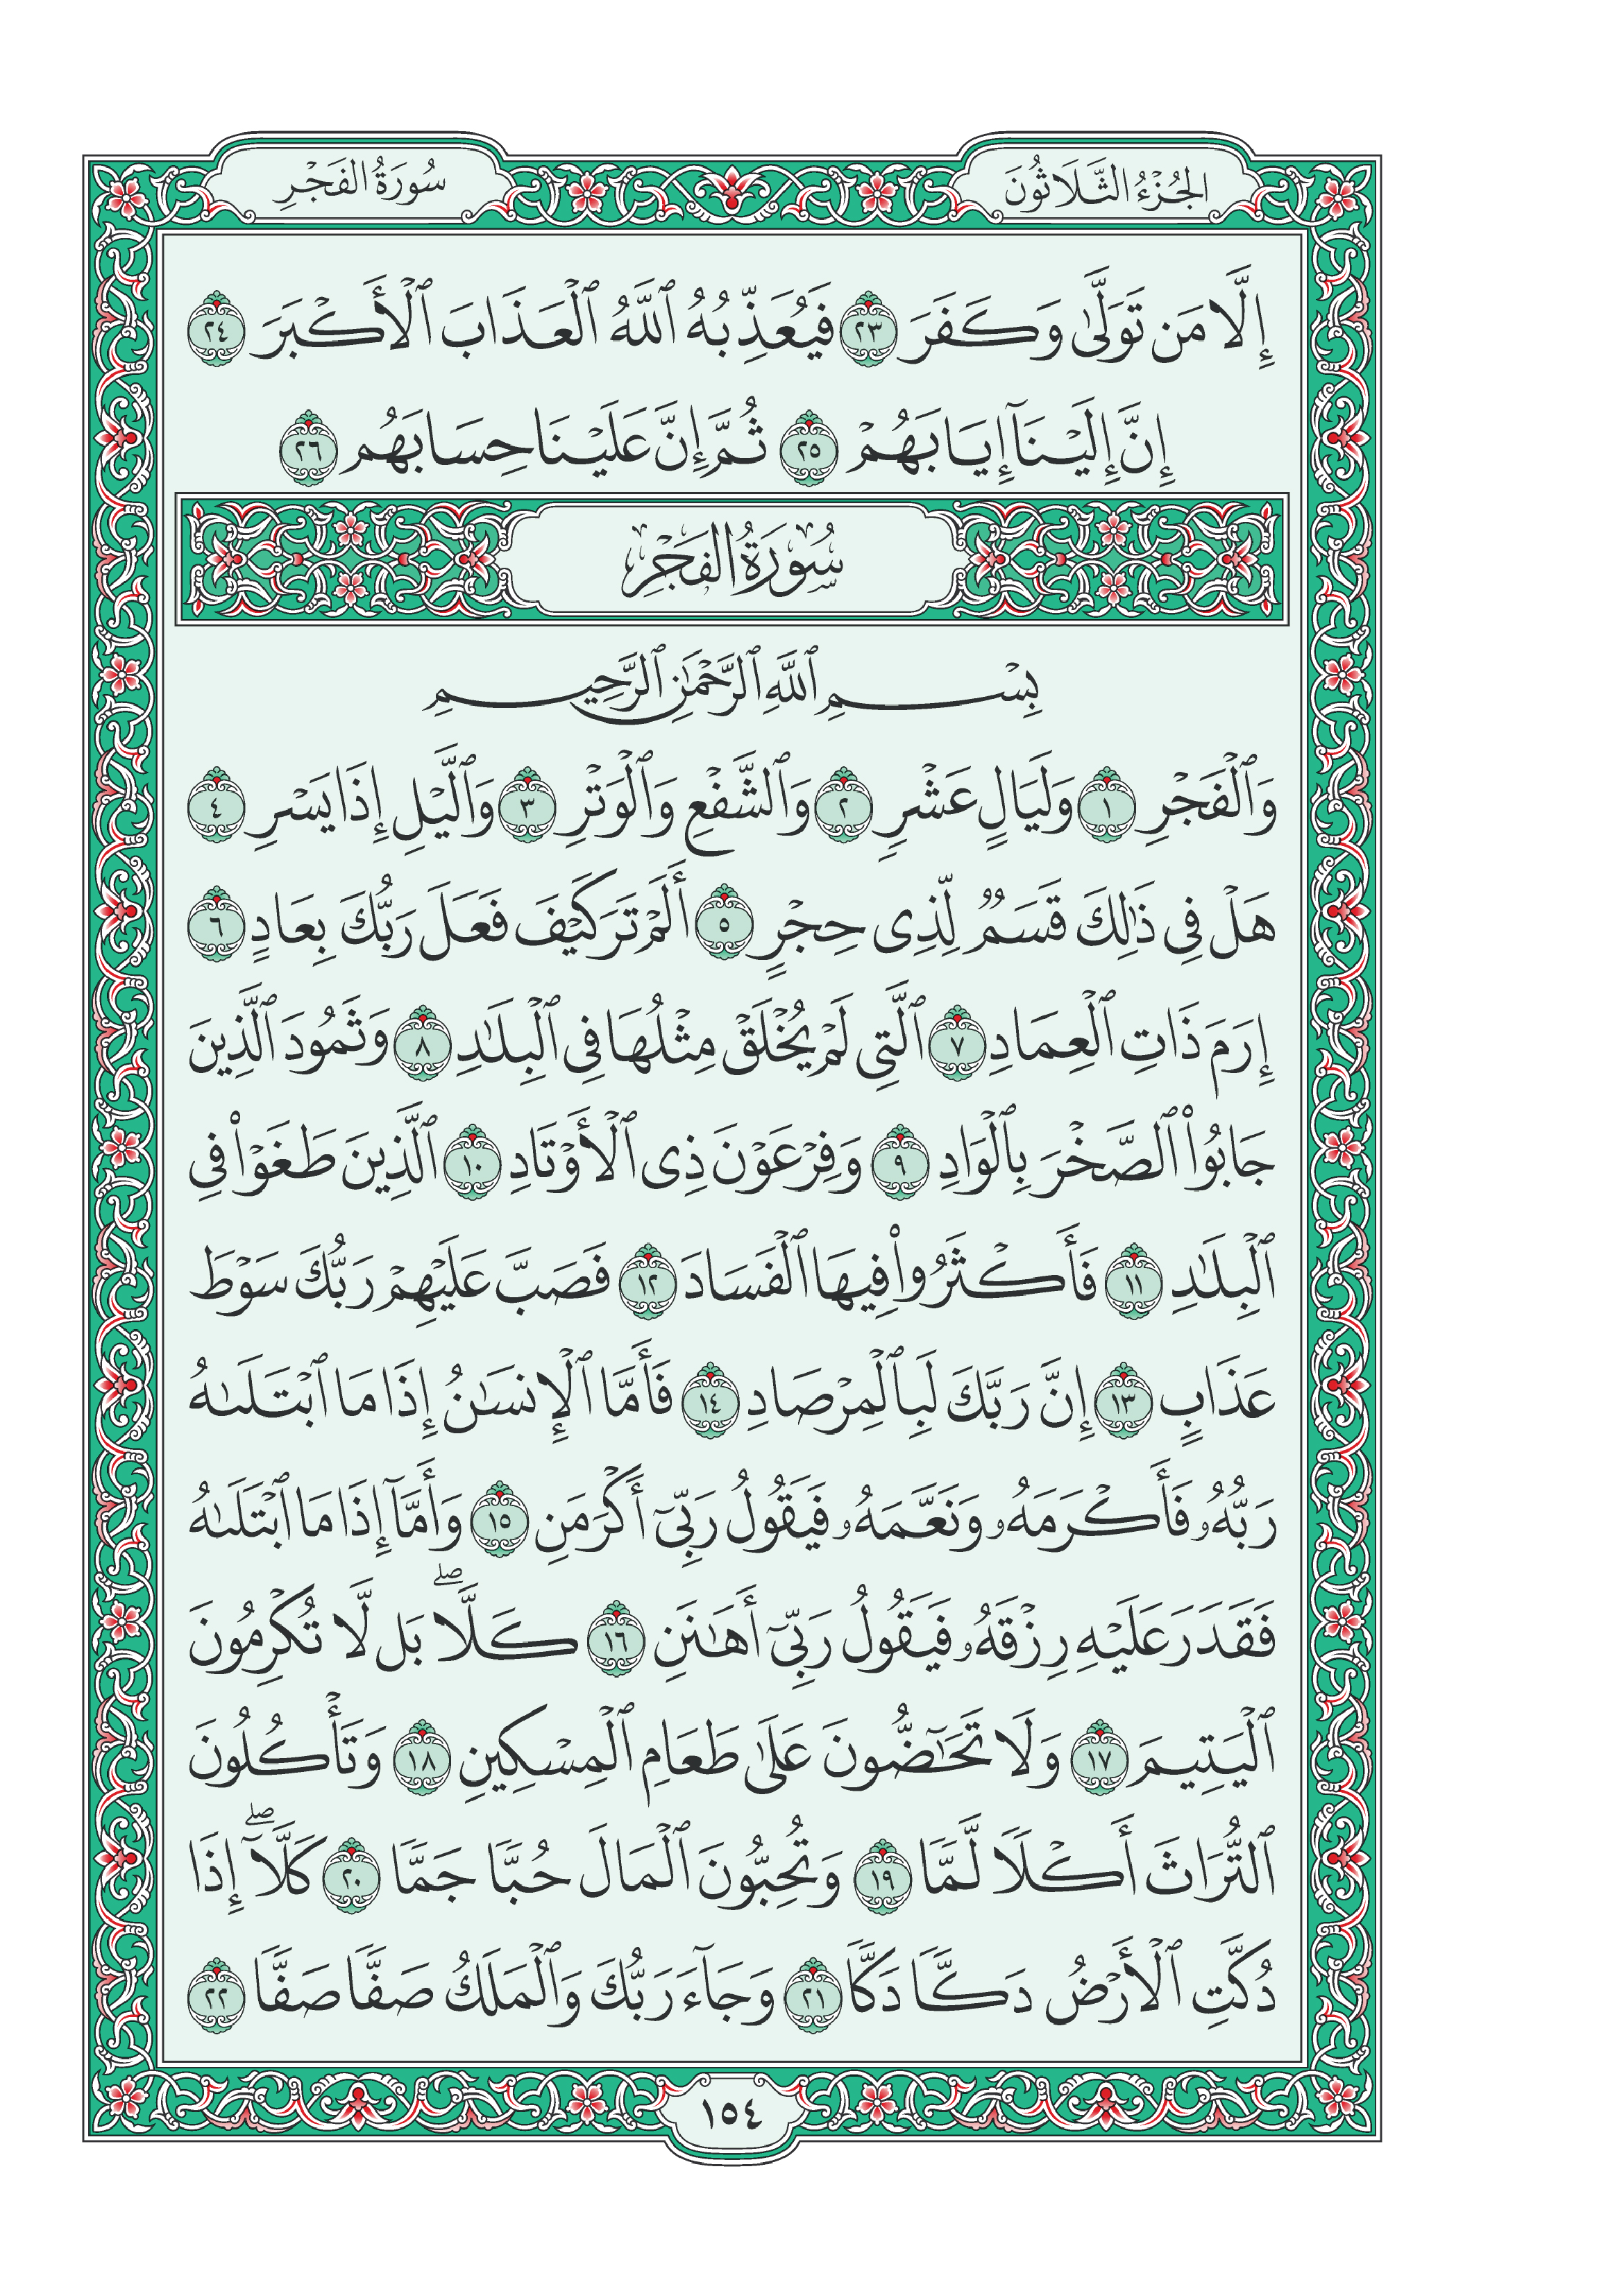 الجُزْءُ الثَّلَاثُونَ
سُورَةُ الفَجْرِ
إِلَّا مَن تَوَلَّىٰ وَكَفَرَ ٢٣ فَيُعَذِّبُهُ ٱللَّهُ ٱلْعَذَابَ ٱلْأَكْبَرَ ٢٤
إِنَّ إِلَيْنَآ إِيَابَهُمْ ٢٥ ثُمَّ إِنَّ عَلَيْنَا حِسَابَهُم ٢٦
سُورَةُ الفَجْرِ
بِسْمِ ٱللَّهِ ٱلرَّحْمَٰنِ ٱلرَّحِيمِ
وَٱلْفَجْرِ ١ وَلَيَالٍ عَشْرٍ ٢ وَٱلشَّفْعِ وَٱلْوَتْرِ ٣ وَٱلَّيْلِ إِذَا يَسْرِ ٤
هَلْ فِى ذَٰلِكَ قَسَمٌ لِّذِى حِجْرٍ ٥ أَلَمْ تَرَ كَيْفَ فَعَلَ رَبُّكَ بِعَادٍ ٦
إِرَمَ ذَاتِ ٱلْعِمَادِ ٧ ٱلَّتِى لَمْ يُخْلَقْ مِثْلُهَا فِى ٱلْبِلَٰدِ ٨ وَثَمُودَ ٱلَّذِينَ
جَابُوا۟ ٱلصَّخْرَ بِٱلْوَادِ ٩ وَفِرْعَوْنَ ذِى ٱلْأَوْتَادِ ١٠ ٱلَّذِينَ طَغَوْا۟ فِى
ٱلْبِلَٰدِ ١١ فَأَكْثَرُوا۟ فِيهَا ٱلْفَسَادَ ١٢ فَصَبَّ عَلَيْهِمْ رَبُّكَ سَوْطَ
عَذَابٍ ١٣ إِنَّ رَبَّكَ لَبِٱلْمِرْصَادِ ١٤ فَأَمَّا ٱلْإِنسَٰنُ إِذَا مَا ٱبْتَلَىٰهُ
رَبُّهُۥ فَأَكْرَمَهُۥ وَنَعَّمَهُۥ فَيَقُولُ رَبِّىٓ أَكْرَمَنِ ١٥ وَأَمَّآ إِذَا مَا ٱبْتَلَىٰهُ
فَقَدَرَ عَلَيْهِ رِزْقَهُۥ فَيَقُولُ رَبِّىٓ أَهَٰنَنِ ١٦ كَلَّاۖ بَل لَّا تُكْرِمُونَ
ٱلْيَتِيمَ ١٧ وَلَا تَحَٰٓضُّونَ عَلَىٰ طَعَامِ ٱلْمِسْكِينِ ١٨ وَتَأْكُلُونَ
ٱلتُّرَاثَ أَكْلًا لَّمًّا ١٩ وَتُحِبُّونَ ٱلْمَالَ حُبًّا جَمًّا ٢٠ كَلَّآۖ إِذَا
دُكَّتِ ٱلْأَرْضُ دَكًّا دَكًّا ٢١ وَجَآءَ رَبُّكَ وَٱلْمَلَكُ صَفًّا صَفًّا ٢٢
١٥٤